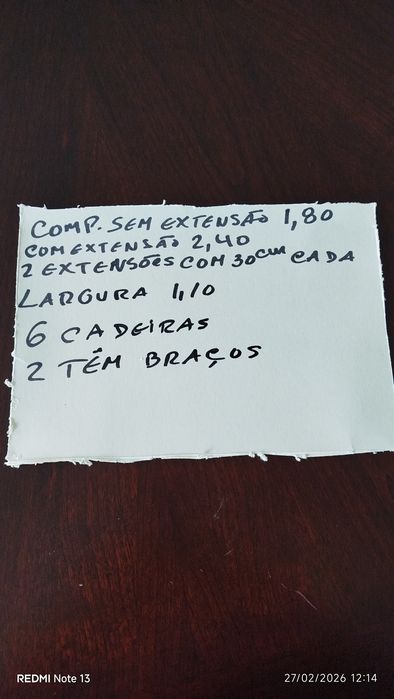 COMP. SEM EXTENSÃO 1,80
COM EXTENSÃO 2,40
2 EXTENSÕES COM 30cm CADA
LARGURA 1,10
6 CADEIRAS
2 TÊM BRAÇOS
REDMI Note 13
27/02/2026 12:14